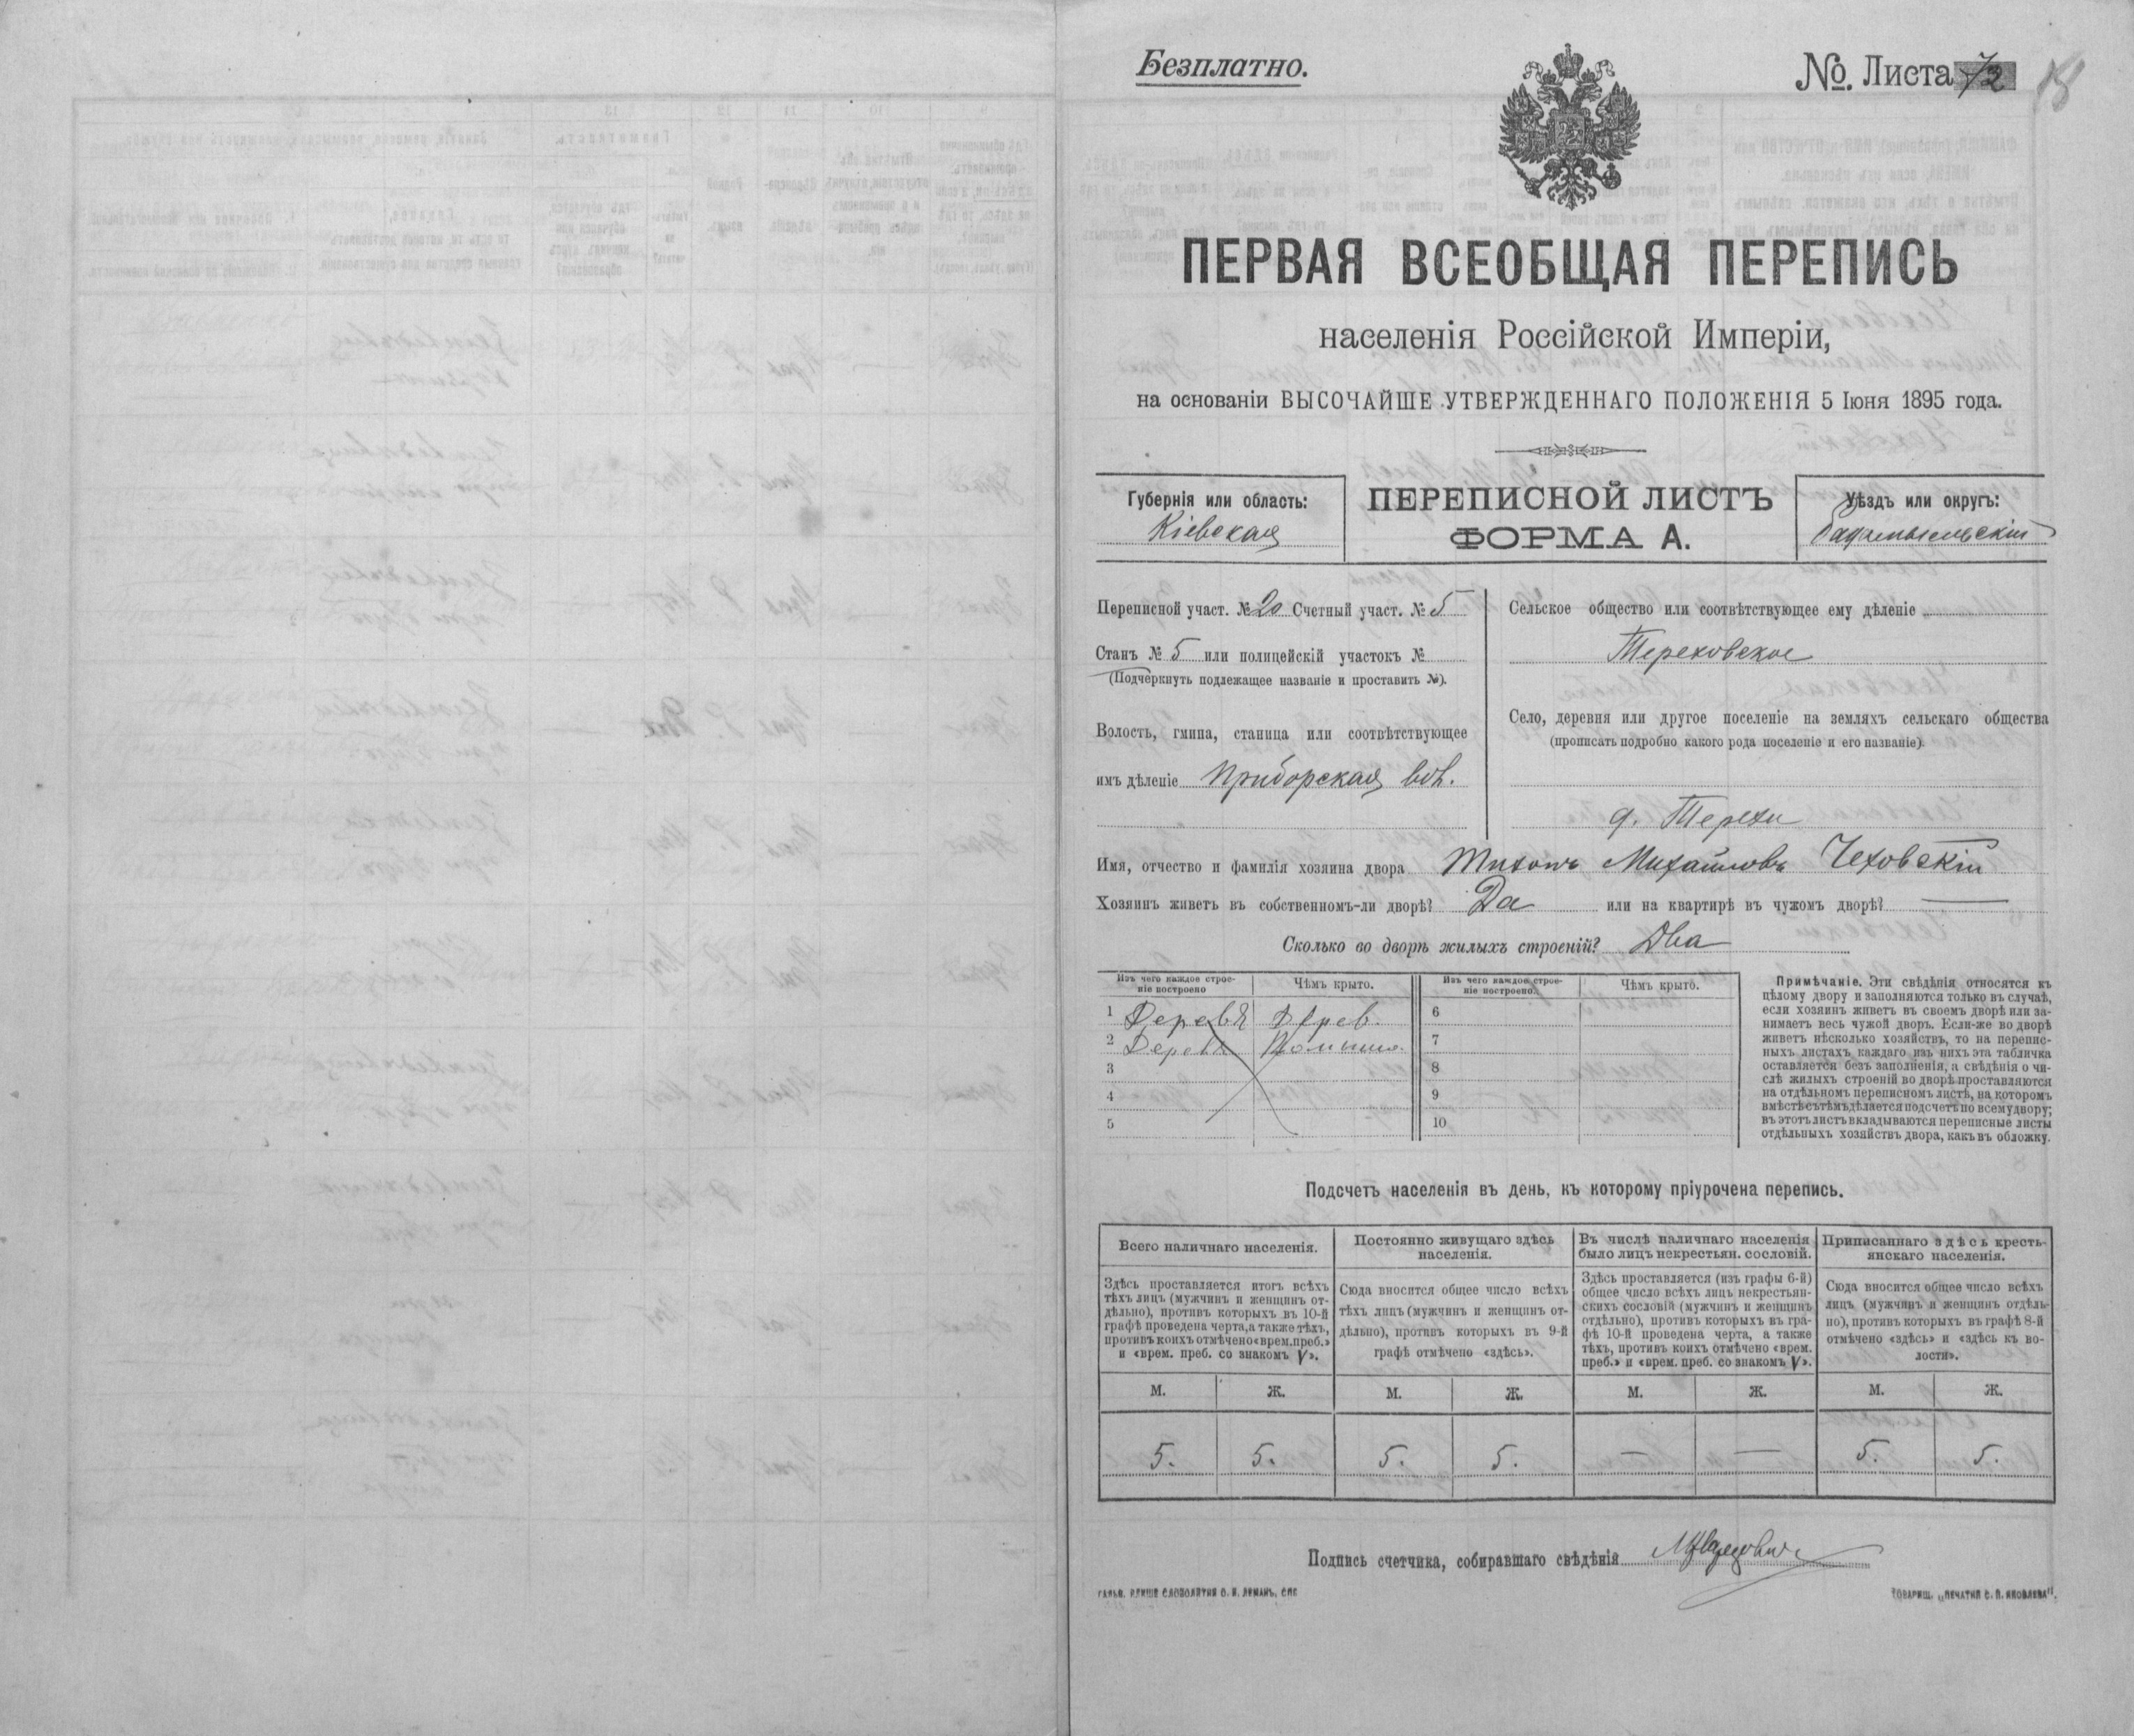 Безплатно.
№. Листа 72
18
ПЕРВАЯ ВСЕОБЩАЯ ПЕРЕПИСЬ
населенія Россійской Имперіи,
на основаніи ВЫСОЧАЙШЕ УТВЕРЖДЕННАГО ПОЛОЖЕНІЯ 5 Іюня 1895 года.
Губернія или область:
Кіевская
ПЕРЕПИСНОЙ ЛИСТЪ
ФОРМА А.
Уѣздъ или округъ:
Радомысльскій
Переписной участ. № 20 Счетный участ. № 5
Станъ № 5 или полицейскій участокъ №
(Подчеркнуть подлежащее названіе и проставить №).
Волость, гмина, станица или соотвѣтствующее
имъ дѣленіе Приборская вол.
Сельское общество или соотвѣтствующее ему дѣленіе
Тереховское
Село, деревня или другое поселеніе на земляхъ сельскаго общества
(прописать подробно какого рода поселеніе и его названіе).
д. Терехи
Имя, отчество и фамилія хозяина двора Тихонъ Михайловъ Чеховскій
Хозяинъ живетъ въ собственномъ-ли дворѣ? Да или на квартирѣ въ чужомъ дворѣ? —
Сколько во дворѣ жилыхъ строеній? Два
Изъ чего каждое строе-
ніе построено
Чѣмъ крыто.
Изъ чего каждое строе-
ніе построено.
Чѣмъ крыто.
1 Дерева Дерев. 6
2 Дерева 7
3 8
4 9
5 10
Примѣчаніе. Эти свѣдѣнія относятся къ
цѣлому двору и заполняются только въ случаѣ,
если хозяинъ живетъ въ своемъ дворѣ или за-
нимаетъ весь чужой дворъ. Если-же во дворѣ
живетъ нѣсколько хозяйствъ, то на перепис-
ныхъ листахъ каждаго изъ нихъ эта табличка
оставляется безъ заполненія, а свѣдѣнія о чи-
слѣ жилыхъ строеній во дворѣ проставляются
на отдѣльномъ переписномъ листѣ, на которомъ
вмѣстѣ съ тѣмъ дѣлается подсчетъ по всему двору;
въ этотъ листъ вкладываются переписные листы
отдѣльныхъ хозяйствъ двора, какъ въ обложку.
Подсчетъ населенія въ день, къ которому пріурочена перепись.
Всего наличнаго населенія.
Здѣсь проставляется итогъ всѣхъ
тѣхъ лицъ (мужчинъ и женщинъ от-
дѣльно), противъ которыхъ въ 10-й
графѣ проведена черта, а также тѣхъ,
противъ коихъ отмѣчено «врем. преб.»
и «врем. преб. со знакомъ V».
Постоянно живущаго здѣсь
населенія.
Сюда вносится общее число всѣхъ
тѣхъ лицъ (мужчинъ и женщинъ от-
дѣльно), противъ которыхъ въ 9-й
графѣ отмѣчено «здѣсь».
Въ числѣ наличнаго населенія
было лицъ некрестьян. сословій.
Здѣсь проставляется (изъ графы 6-й)
общее число всѣхъ лицъ некрестьян-
скихъ сословій (мужчинъ и женщинъ
отдѣльно), противъ которыхъ въ гра-
фѣ 10-й проведена черта, а также
тѣхъ, противъ коихъ отмѣчено «врем.
преб.» и «врем. преб. со знакомъ V».
Приписаннаго здѣсь кресть-
янскаго населенія.
Сюда вносится общее число всѣхъ
лицъ (мужчинъ и женщинъ отдѣль-
но), противъ которыхъ въ графѣ 8-й
отмѣчено «здѣсь» и «здѣсь къ во-
лости».
М. Ж. М. Ж. М. Ж. М. Ж.
5. 5. 5. 5. — — 5. 5.
Подпись счетчика, собиравшаго свѣдѣнія
ГАЛЬВ. КЛИШЕ СЛОВОЛИТНИ О. И. ЛЕМАНЪ, СПБ
ТОВАРИЩ. „ПЕЧАТНЯ С. П. ЯКОВЛЕВА".